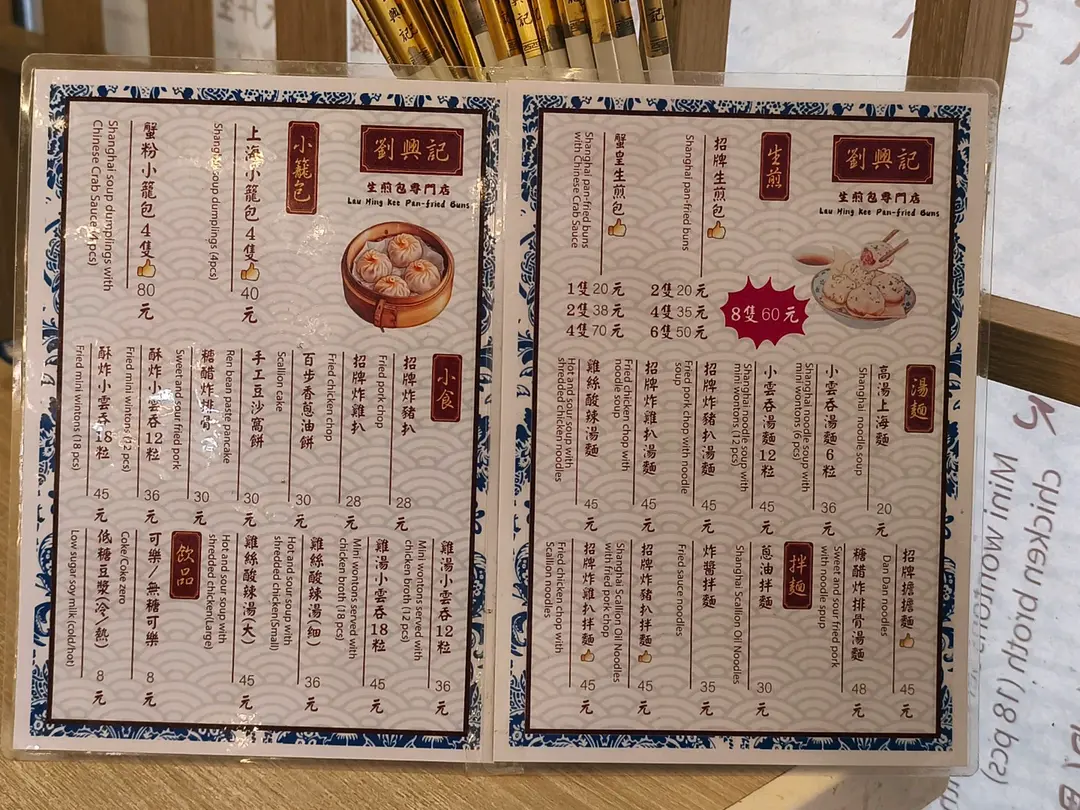 劉興記
生煎包專門店
Lau Hing Kee Pan-fried Buns
生煎
招牌生煎包
Shanghai pan-fried buns
2隻20元
4隻35元
6隻50元
8隻60元
蟹皇生煎包
Shanghai pan-fried buns
with Chinese Crab Sauce
1隻20元
2隻38元
4隻70元
湯麵
高湯上海麵
Shanghai noodle soup
20元
小雲吞湯麵6粒
Shanghai noodle soup with
mini wontons (6 pcs)
36元
小雲吞湯麵12粒
Shanghai noodle soup with
mini wontons (12 pcs)
45元
招牌炸豬扒湯麵
Fried pork chop with noodle
soup
45元
招牌炸雞扒湯麵
Fried chicken chop with
noodle soup
45元
雞絲酸辣湯麵
Hot and sour soup with
shredded chicken noodles
45元
招牌擔擔麵
Dan Dan noodles
45元
糖醋炸排骨湯麵
Sweet and sour fried pork
with noodle soup
48元
拌麵
蔥油拌麵
Shanghai Scallion Oil Noodles
30元
炸醬拌麵
Fried sauce noodles
35元
招牌炸豬扒拌麵
Shanghai Scallion Oil Noodles
with fried pork chop
45元
招牌炸雞扒拌麵
Fried chicken chop with
Scallion noodles
45元
劉興記
生煎包專門店
Lau Hing Kee Pan-fried Buns
小籠包
上海小籠包4隻
Shanghai soup dumplings (4pcs)
40元
蟹粉小籠包4隻
Shanghai soup dumplings with
Chinese Crab Sauce (4pcs)
80元
小食
招牌炸豬扒
Fried pork chop
28元
招牌炸雞扒
Fried chicken chop
28元
百步香蔥油餅
Scallion cake
30元
手工豆沙窩餅
Ren bean paste pancake
30元
糖醋炸排骨
Sweet and sour fried pork
30元
酥炸小雲吞12粒
Fried mini wintons (12 pcs)
36元
酥炸小雲吞18粒
Fried mini wintons (18 pcs)
45元
雞湯小雲吞12粒
Mini wontons served with
chicken broth (12 pcs)
36元
雞湯小雲吞18粒
Mini wontons served with
chicken broth (18 pcs)
45元
雞絲酸辣湯(細)
Hot and sour soup with
shredded chicken(Small)
36元
雞絲酸辣湯(大)
Hot and sour soup with
shredded chicken(Large)
45元
飲品
可樂／無糖可樂
Coke/Coke zero
8元
低糖豆漿(冷／熱)
Low sugar soy milk (cold/hot)
8元
chicken broth (18 pcs)
Mini wontons